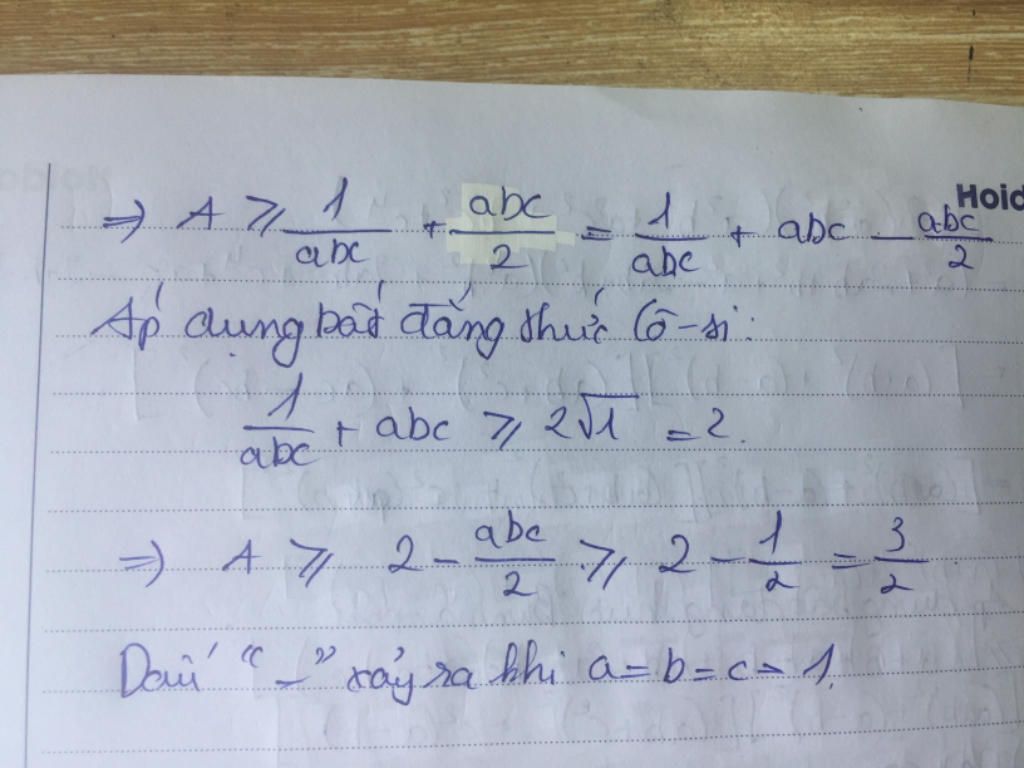 Hoid
⇒ A ≥ 1/abc + abc/2 = 1/abc + abc - abc/2
Áp dụng bất đẳng thức Cô-si:
1/abc + abc ≥ 2√1 = 2.
⇒ A ≥ 2 - abc/2 ≥ 2 - 1/2 = 3/2
Dấu "=" xảy ra khi a = b = c = 1.